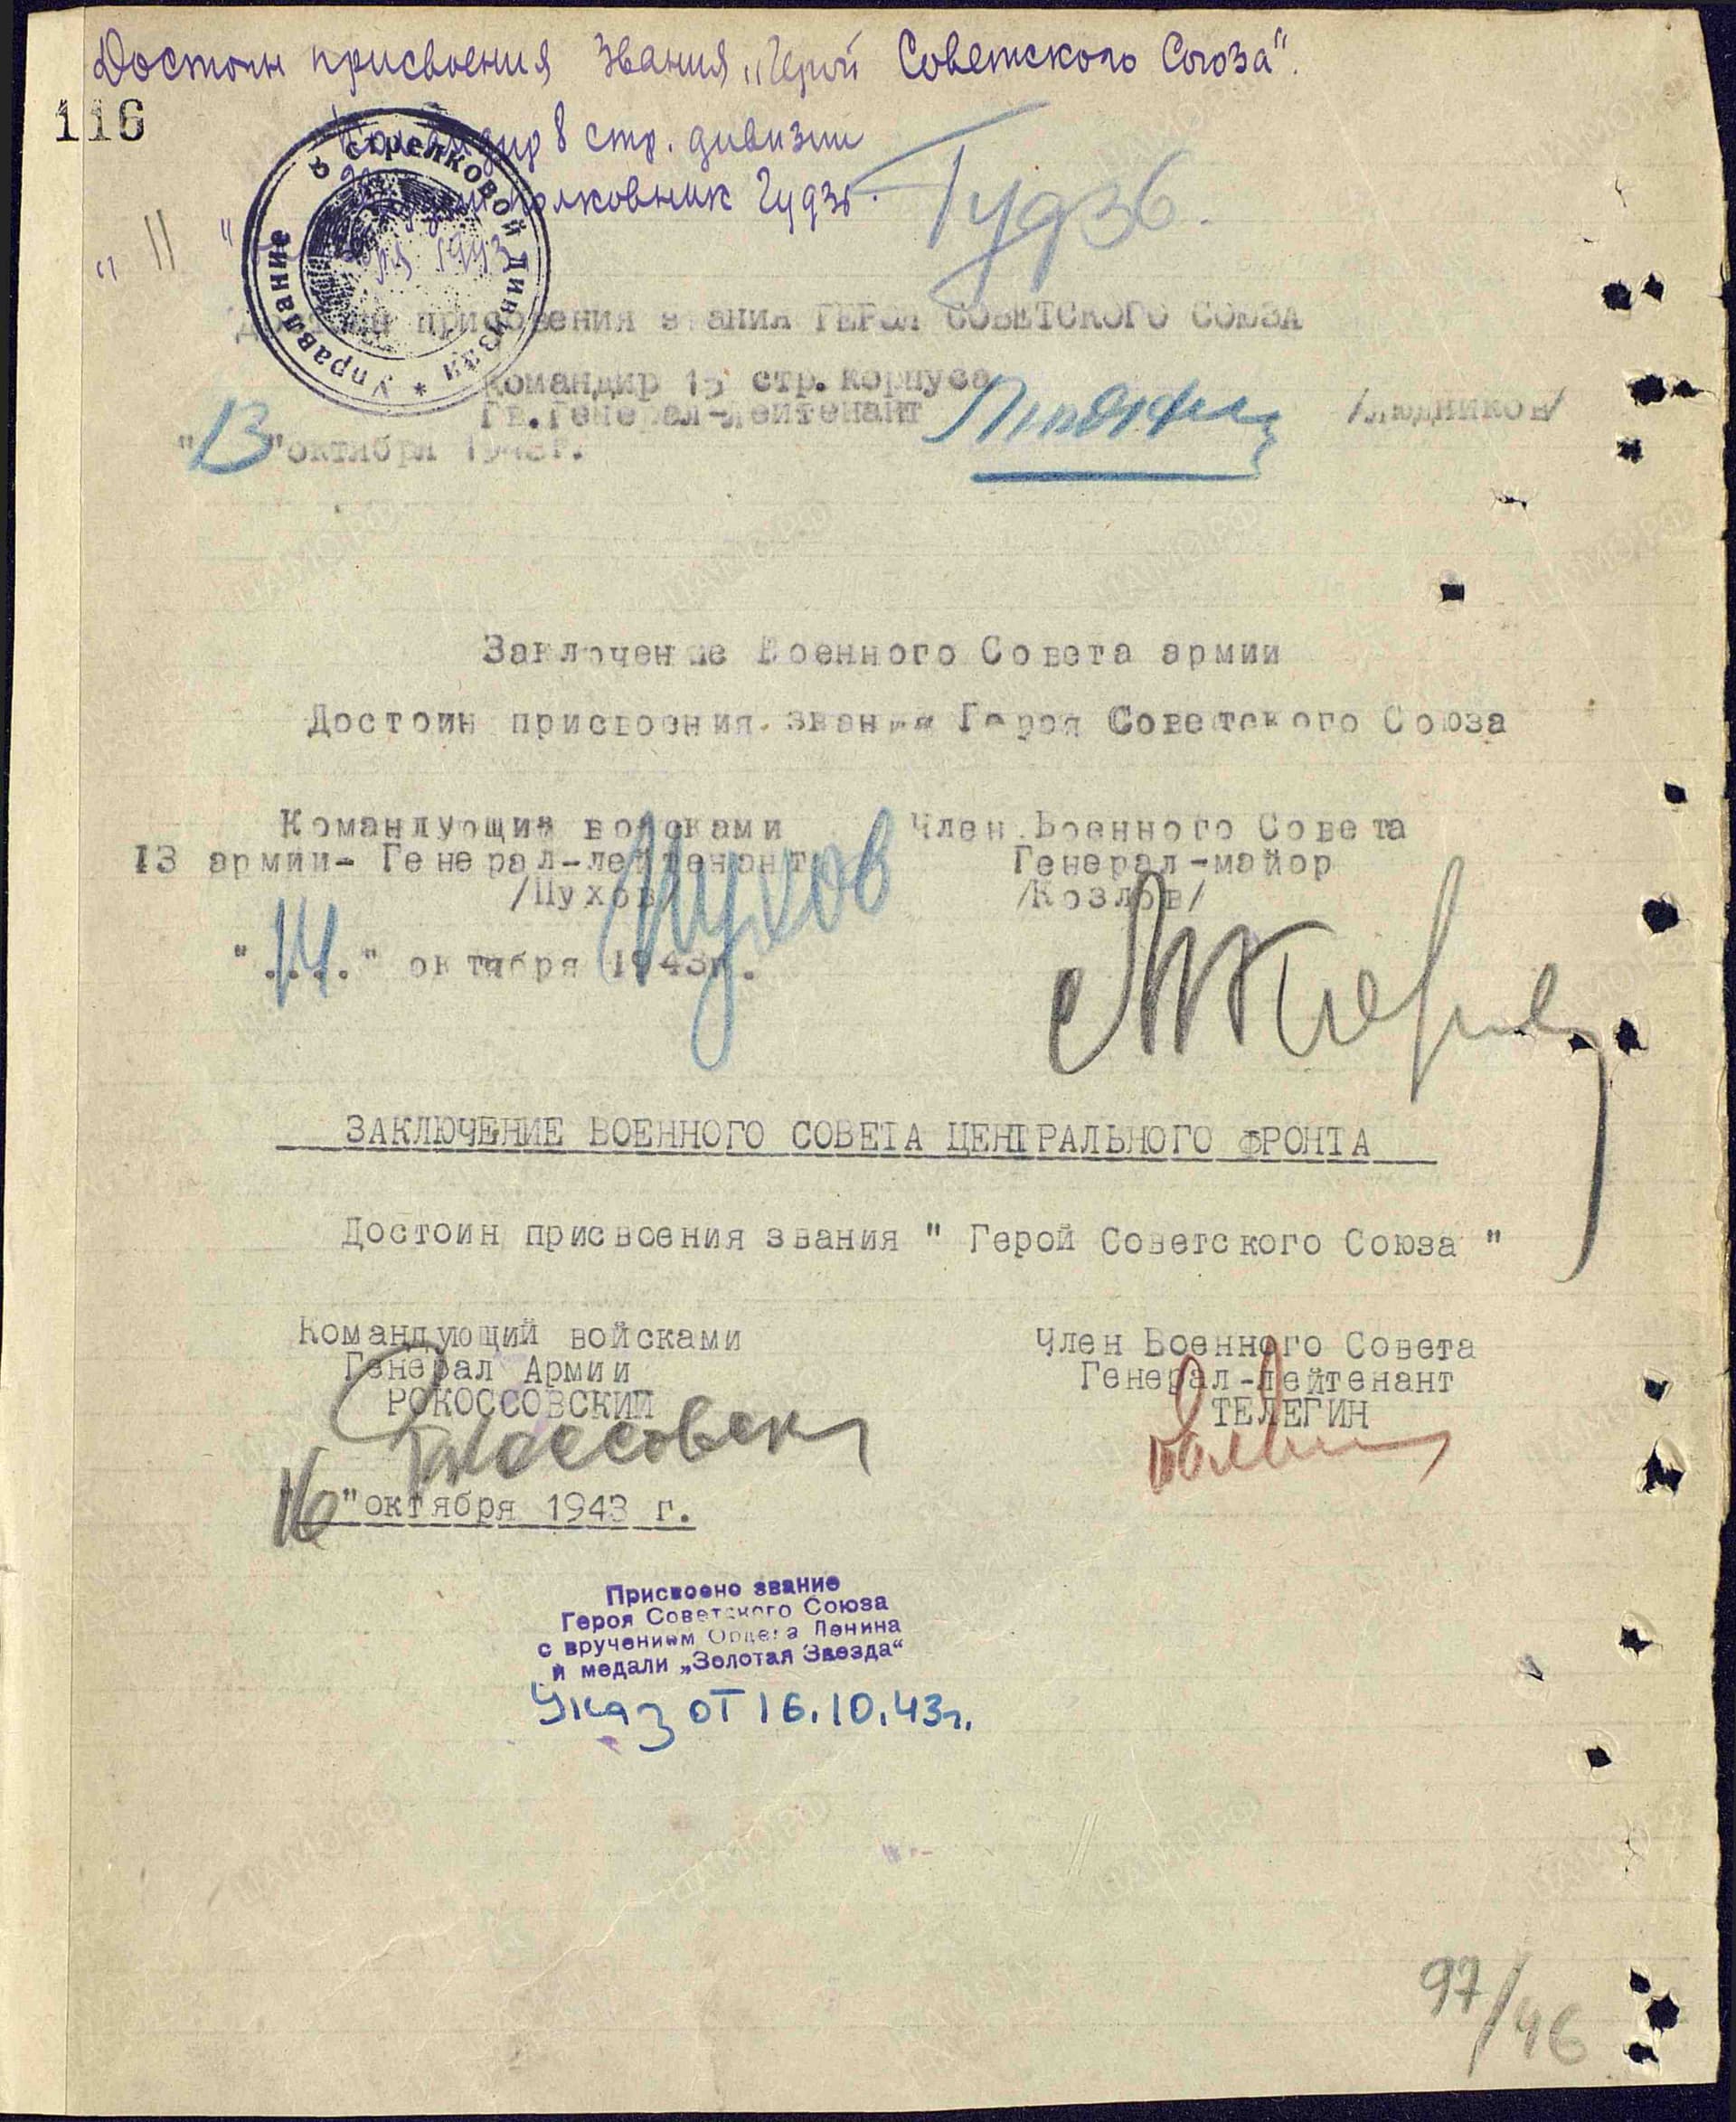 Достоин присвоения звания „Герой Советского Союза“.
116
Командир 8 стр. дивизии
полковник Гудзь.
Гудзь.
8 стрелковой дивизии * Управление
1943
Достоин присвоения звания ГЕРОЯ СОВЕТСКОГО СОЮЗА
Командир 15 стр. корпуса
Гв.Генерал-лейтенант /Людников/
"13"октября 1943г.
Заключение Военного Совета армии
Достоин присвоения звания Героя Советского Союза
Командующий войсками Член Военного Совета
13 армии- Генерал-лейтенант Генерал-майор
/Пухов/ Пухов /Козлов/
"14" октября 1943г.
ЗАКЛЮЧЕНИЕ ВОЕННОГО СОВЕТА ЦЕНТРАЛЬНОГО ФРОНТА
Достоин присвоения звания " Герой Советского Союза "
Командующий войсками Член Военного Совета
Генерал Армии Генерал-Лейтенант
РОКОССОВСКИЙ ТЕЛЕГИН
"16"октября 1943 г.
Присвоено звание
Героя Советского Союза
с вручением Ордена Ленина
и медали „Золотая Звезда“
Указ от 16.10.43г.
97/46